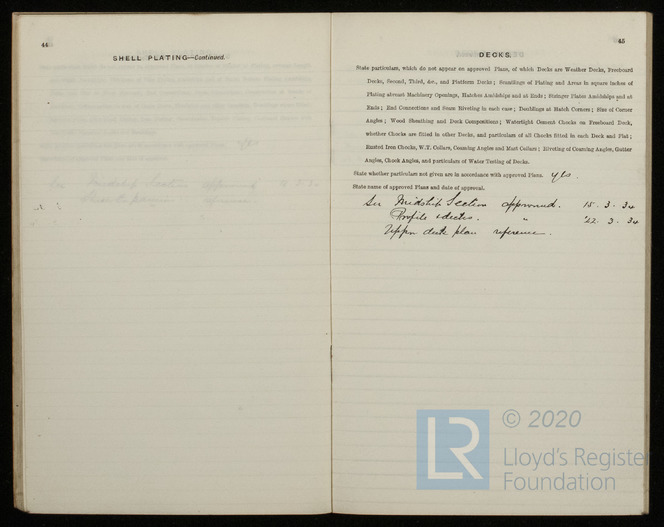 44
SHELL PLATING—Continued.
45
DECKS.
State particulars, which do not appear on approved Plans, of which Decks are Weather Decks, Freeboard
Decks, Second, Third, &c., and Platform Decks; Scantlings of Plating and Areas in square inches of
Plating abreast Machinery Openings, Hatches Amidships and at Ends; Stringer Plates Amidships and at
Ends; End Connections and Seam Riveting in each case; Doublings at Hatch Corners; Size of Corner
Angles; Wood Sheathing and Deck Compositions; Watertight Cement Chocks on Freeboard Deck,
whether Chocks are fitted in other Decks, and particulars of all Chocks fitted in each Deck and Flat;
Rusted Iron Chocks, W.T. Collars, Coaming Angles and Mast Collars; Riveting of Coaming Angles, Gutter
Angles, Chock Angles, and particulars of Water Testing of Decks.
State whether particulars not given are in accordance with approved Plans. yes.
State name of approved Plans and date of approval.
See Midship Section approved. 15. 3. 34
Profile & decks. " 22. 3. 34
Upper deck plan reference.
LR © 2020
Lloyd's Register
Foundation